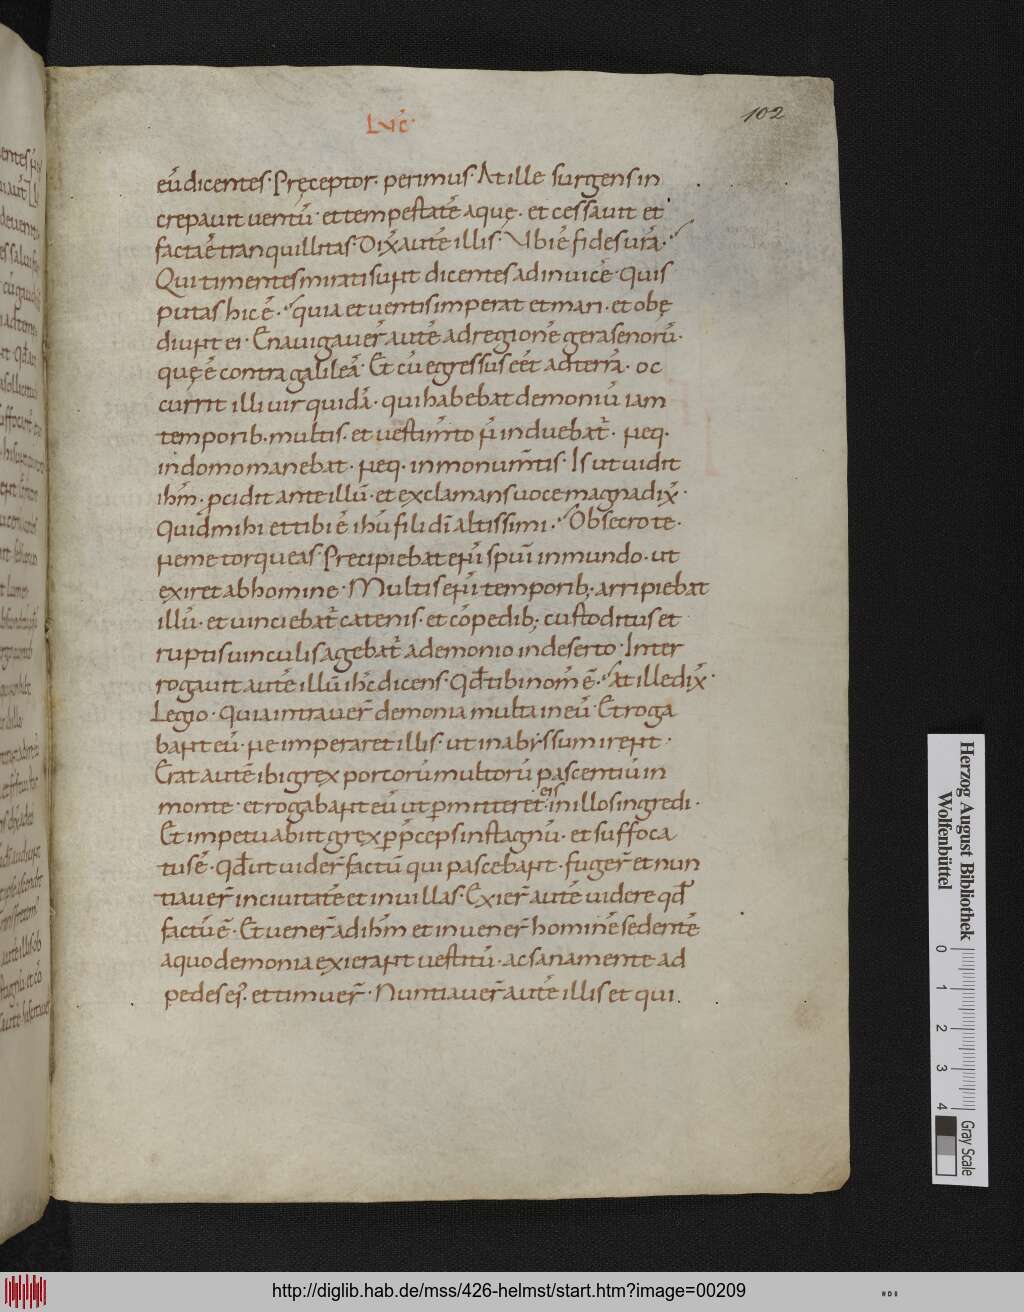 Lvc̄·
102
eū dicentes· Pręceptor· perimus· At ille surgens in
crepauit uentū· et tempestatē aquę· et cessauit et
facta ē tranquillitas· Dix̄ autē illis· Vbi ē fides urā·
Qui timentes mirati sunt dicentes ad inuicē· Quis
putas hic ē· quia et uentis imperat et mari· et obę
diunt ei· Enauigauer̄ autē ad regionē gerasenorū·
quę ē contra galileā· Et cū egressus eēt ad terrā· oc
currit illi uir quidā· qui habebat demoniū iam
temporib· multis· et uestim̄to n̄ induebat̄· neq·
in domo manebat· neq· in monum̄tis· Is ut uidit
ihm̄· pcidit ante illū· et exclamans uoce magna dix̄·
Quid mihi et tibi ē ihū fili dī altissimi· Obsecro te·
ne me torqueas· Precipiebat enī spuī inmundo· ut
exiret ab homine· Multis enī temporib; arripiebat
illū· et uinciebat̄ catenis· et cōpedib; custoditus et
ruptis uinculis agebat̄ a demonio in deserto· Inter
rogauit autē illū ihc̄ dicens· Qd̄ tibi nom̄ ē· At ille dix̄·
Legio· Quia intrauer̄ demonia multa in eū· Et roga
bant eū· ne imperaret illis· ut in abyssum irent·
Erat autē ibi grex porcorū multorū pascentiū in
monte· et rogabant eū ut pmitteret eis in illos ingredi·
Et impetu abiit grex p p̄ceps in stagnū· et suffoca
tus ē· Qd̄ ut uider̄ factū qui pascebant· fuger̄ et nun
tiauer̄ in ciuitatē et in uillas· Exier̄ autē uidere qd̄
factū ē· Et uener̄ ad ihm̄ et inuener̄ hominē sedentē
a quo demonia exierant uestitū· ac sana mente ad
pedes ei᾽· et timuer̄· Nuntiauer̄ autē illis et qui
Herzog August Bibliothek
Wolfenbüttel
0 1 2 3 4
Gray Scale
http://diglib.hab.de/mss/426-helmst/start.htm?image=00209